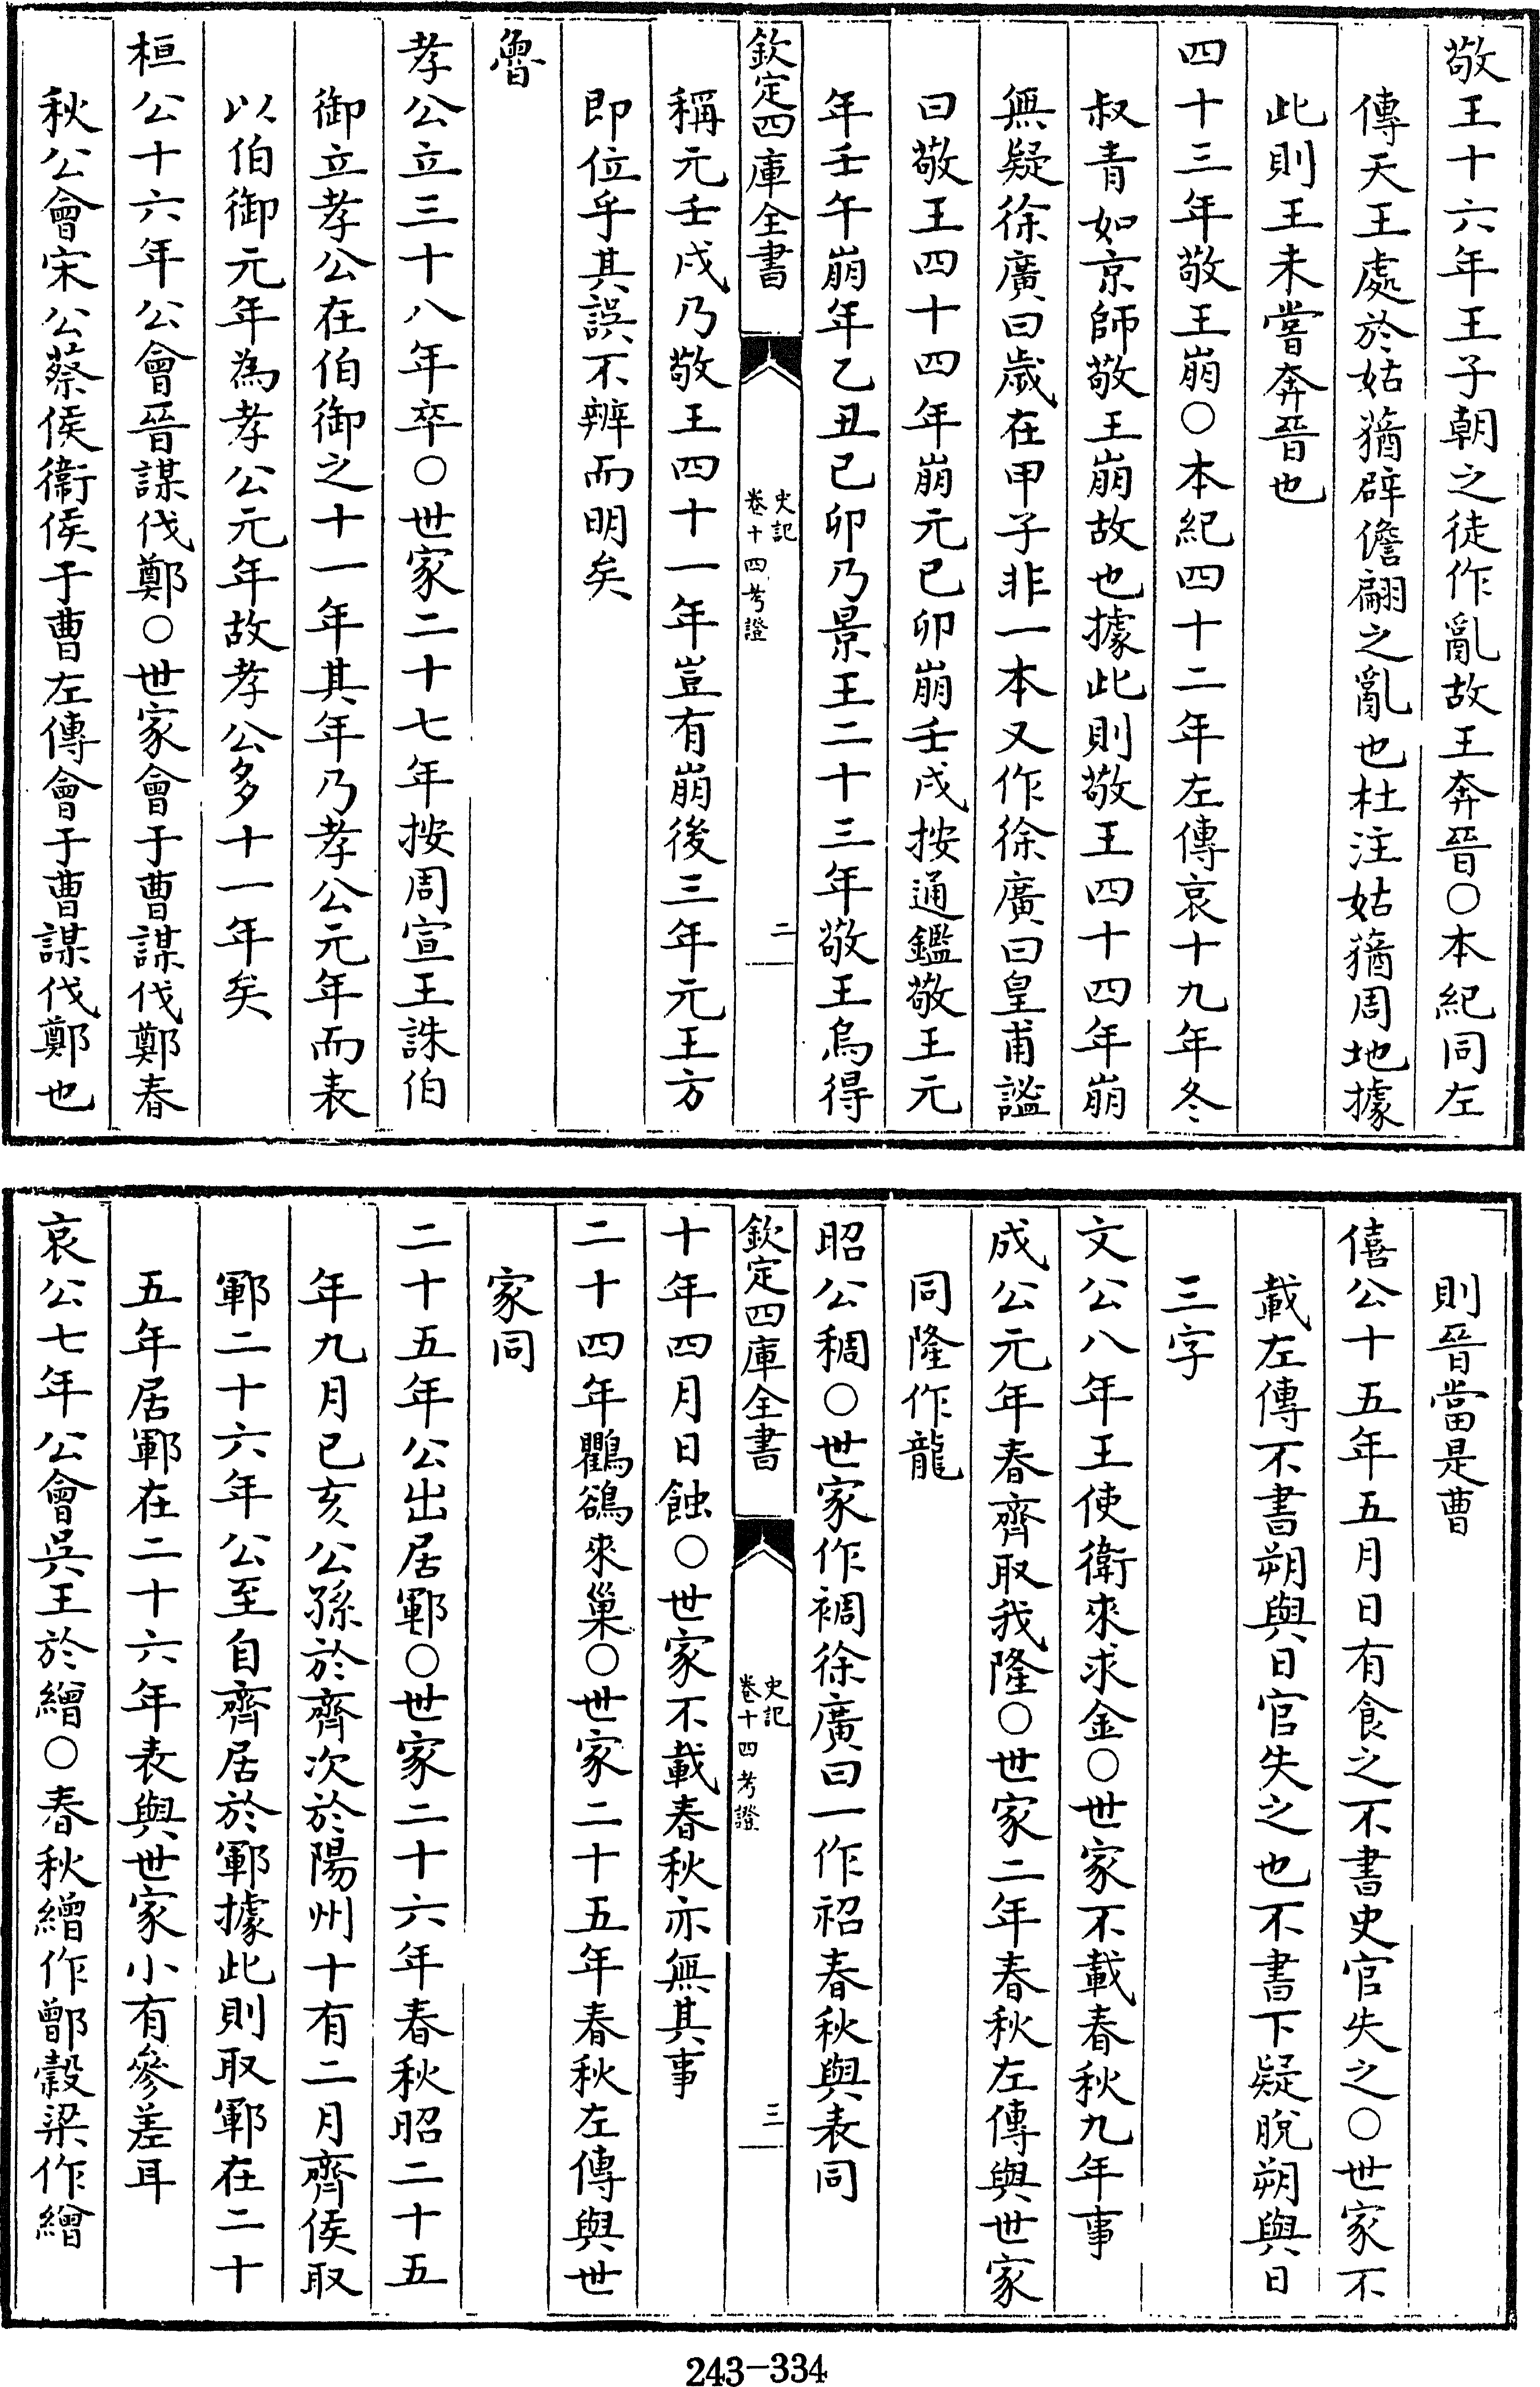 敬王十六年王子朝之徒作亂故王奔晉○本紀同左
傳天王處於姑蕕辟儋翩之亂也杜注姑蕕周地據
此則王未嘗奔晉也
四十三年敬王崩○本紀四十二年左傳哀十九年冬
叔青如京師敬王崩故也據此則敬王四十四年崩
無疑徐廣曰歲在甲子非一本又作徐廣曰皇甫謐
曰敬王四十四年崩元己卯崩壬戌按通鑑敬王元
年壬午崩年乙丑己卯乃景王二十三年敬王烏得
欽定四庫全書
史記
卷十四考證
二
稱元壬戌乃敬王四十一年豈有崩後三年元王方
即位乎其誤不辨而明矣
魯
孝公立三十八年卒○世家二十七年按周宣王誅伯
御立孝公在伯御之十一年其年乃孝公元年而表
以伯御元年為孝公元年故孝公多十一年矣
桓公十六年公會晉謀伐鄭○世家會于曹謀伐鄭春
秋公會宋公蔡侯衛侯于曹左傳會于曹謀伐鄭也
則晉當是曹
僖公十五年五月日有食之不書史官失之○世家不
載左傳不書朔與日官失之也不書下疑脫朔與日
三字
文公八年王使衛來求金○世家不載春秋九年事
成公元年春齊取我隆○世家二年春秋左傳與世家
同隆作龍
昭公稠○世家作裯徐廣曰一作袑春秋與表同
欽定四庫全書
史記
卷十四考證
三
十年四月日蝕○世家不載春秋亦無其事
二十四年鸜鵒來巢○世家二十五年春秋左傳與世
家同
二十五年公出居鄆○世家二十六年春秋昭二十五
年九月己亥公孫於齊次於陽州十有二月齊侯取
鄆二十六年公至自齊居於鄆據此則取鄆在二十
五年居鄆在二十六年表與世家小有參差耳
哀公七年公會吳王於繒○春秋繒作鄫穀梁作繒
243-334